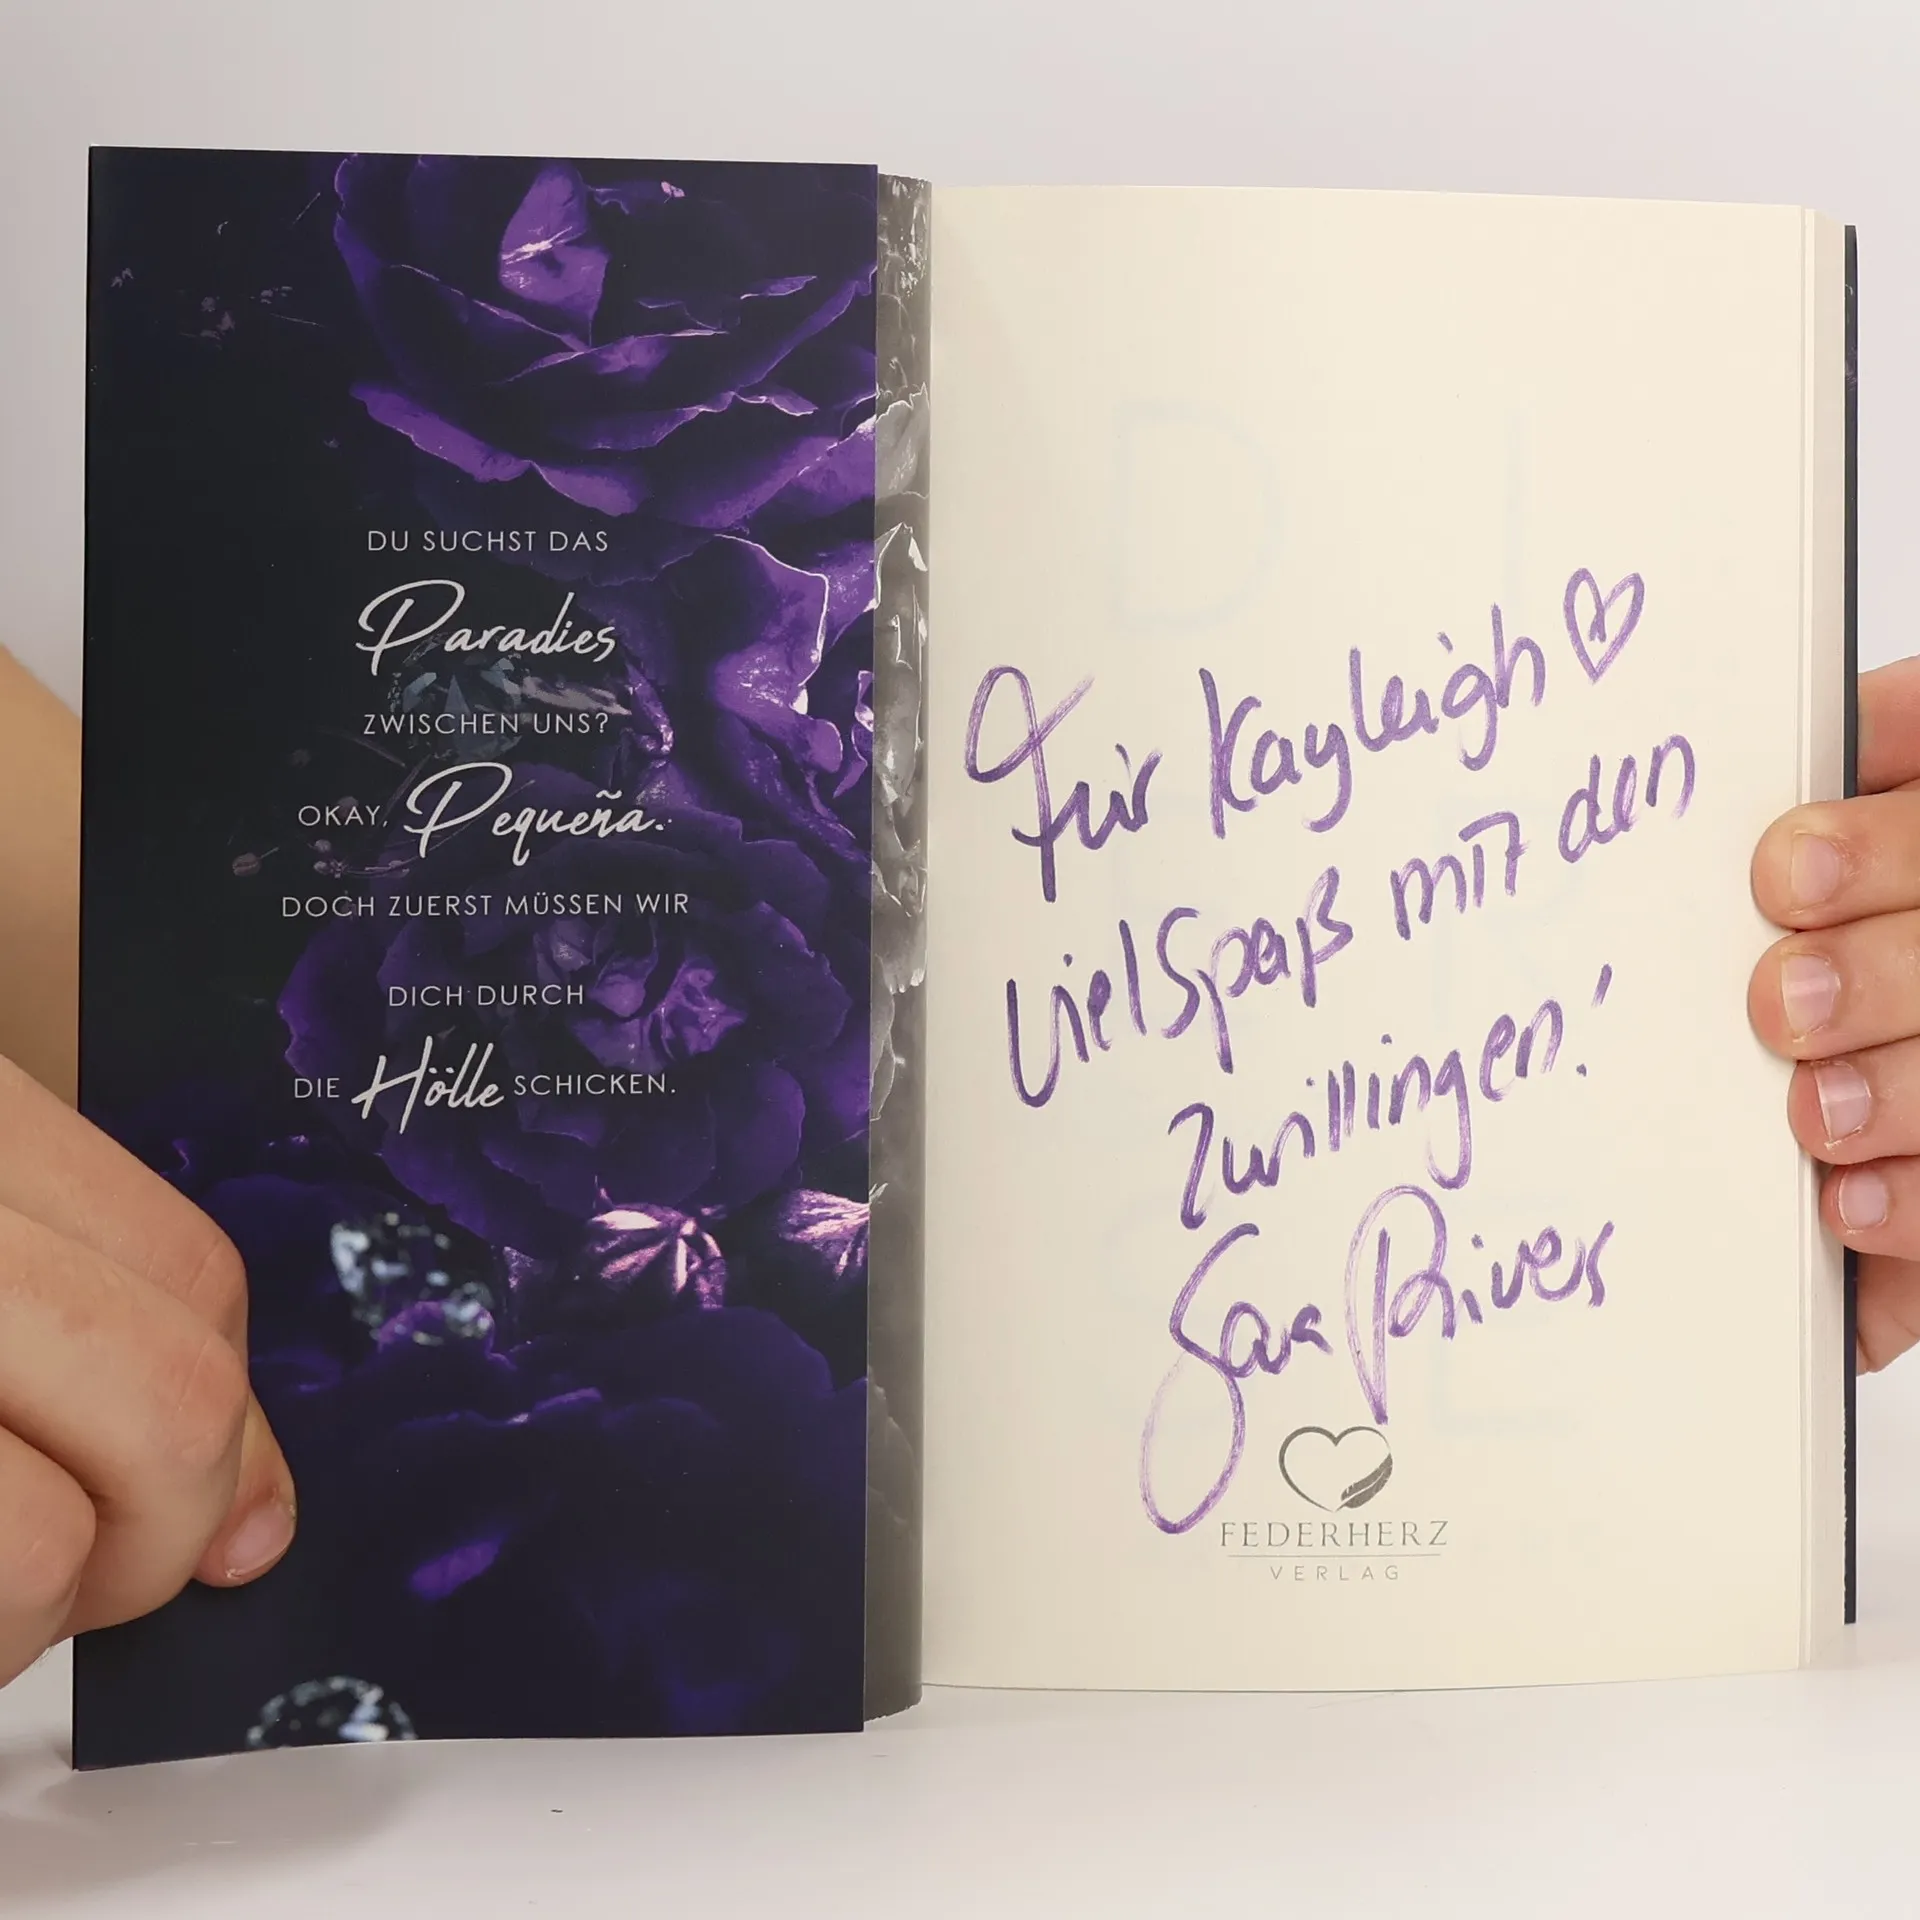 DU SUCHST DAS
Paradies
ZWISCHEN UNS?
OKAY, Pequeña.
DOCH ZUERST MÜSSEN WIR
DICH DURCH
DIE Hölle SCHICKEN.
Für Kayleigh ♡
viel Spaß mit den
Zwillingen!
Sara Rivers
FEDERHERZ
VERLAG